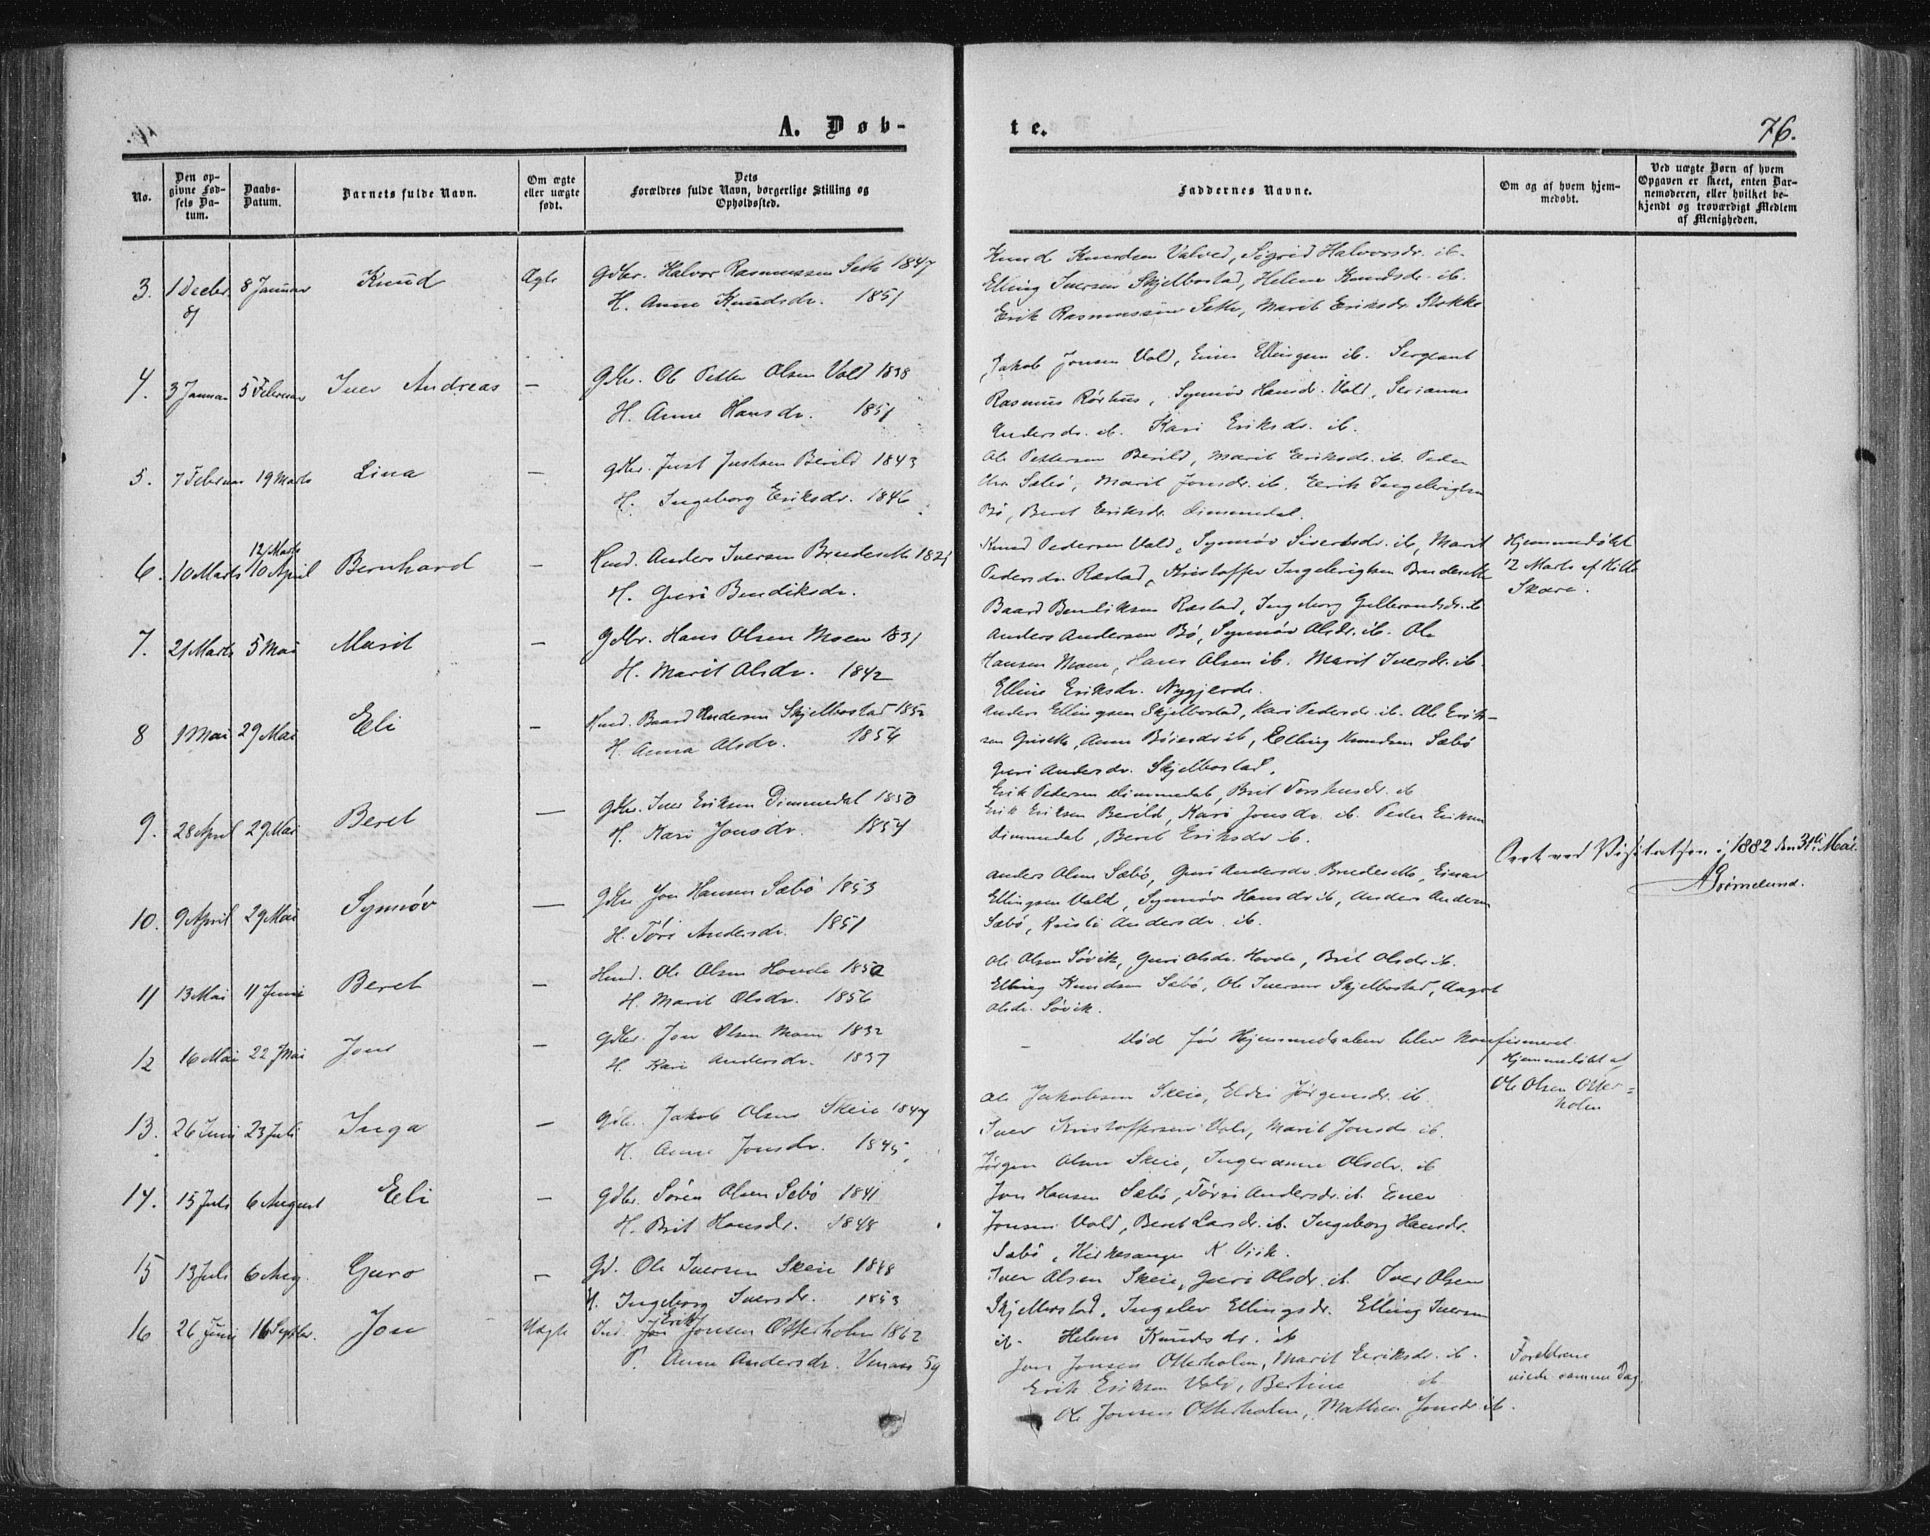 A. Døb-
te.
76.
No.
Den op-
givne Fød-
sels Da-
tum.
Daabs-
Datum.
Barnets fulde Navn.
Om ægte
eller uægte
født.
Dets
Forældres fulde Navn, borgerlige Stilling og
Opholdssted.
Faddernes Navne.
Om og af hvem hjem-
medøbt.
Ved uægte Børn af hvem
Opgaven er skeet, enten Bar-
nemoderen, eller hvilket be-
kjendt og troværdigt Medlem
af Menigheden.
3. 1 Decbr. 8 Januar Knud Ægte Gdbr. Halvor Rasmussen Sette 1847
81 H. Anne Knudsdr. 1851
Knud Knudsen Valved, Sigrid Halvorsdr. ib.
Elling Iversen Skjelbostad, Helene Knudsdr. ib.
Erik Rasmussen Sette, Marit Eriksdr. Stokke
4. 3 Januar 5 Februar Iver Andreas — Gdbr. Ole Petter Olsen Vold 1838
H. Anne Hansdr. 1851
Jakob Jonsen Vold, Einar Ellingsen ib. Sergeant
Rasmus Rørhus, Synnøv Hansdr. Vold, Serianna
Andersdr. ib. Kari Eriksdr. ib.
5. 7 Februar 19 Marts Lina — Gdbr. Just Justsen Berild 1843
H. Ingeborg Eriksdr. 1846
Ole Pettersen Berild, Marit Eriksdr. ib. Peder
Chr. Sæbø, Marit Jonsdr. ib. Eerik Ingebrigtsen
Bø, Beret Eriksdr. Dimmedal.
12 Marts
6. 10 Marts 10 April Bernhard — Hmd. Anders Iversen Brudesette 1821
H. Guri Bendiksdr.
Knud Pedersen Vold, Synnøv Sivertsdr. ib, Marit
Pedersdr. Røstad, Kristoffer Ingebrigtsen Brudesette
Baard Bendiksen Røstad, Ingeborg Gulbrandsdr. ib
Hjemmedøbt
12 Marts af Hille
Skare.
7. 21 Marts 5 Mai Marit — Gdbr. Hans Olsen Moen 1831
H. Marit Olsdr. 1842
Anders Andersen Bø, Synnøv Olsdr. ib. Ole
Hansen Moen, Hans Olsen ib. Marit Iversdr. ib.
Elline Eriksdr. Nygjerde.
8 1 Mai 29 Mai Eli — Hmd. Baard Andersen Skjelbostad 1852
H. Anna Olsdr. 1854
Anders Ellingsen Skjelbostad, Kari Pedersdr. ib. Ole Erik-
sen Gusetb, Anne Bøiesdr ib, Elling Knudsen Sæbø
Guri Andersdr. Skjelbostad.
9. 28 April 29 Mai Beret — Gdbr. Iver Eriksen Dimmedal 1850
H. Kari Jonsdr. 1854
Erik Pedersen Dimmedal, Brit Torshusdr. ib
Erik Eriksen Berild, Kari Jonsdr. ib. Peder Eriksen
Dimmedal, Beret Eriksdr ib.
Seet ved Visitatsen i 1882 den 31te Mai.
A Grimelund.
10. 9 April 29 Mai Synnøv — Gdbr Jon Hansen Sæbø 1853
H. Tøri Andersdr. 1851
Anders Olsen Sæbø, Guri Andersdr. Brudesette, Einar
Ellingsen Vold, Synnøv Hansdr ib, Anders Andersen
Sæbø, Kristi Andersdr. ib.
11 13 Mai 11 Juni Beret — Hmd. Ole Olsen Hovde 1852
H. Marit Olsdr. 1856
Ole Olsen Søvik, Guri Olsdr. Hovde, Brit Olsdr. ib.
Elling Knudsen Sæbø, Ole Iversen Skjelbostad, Aagot
Olsdr. Søvik.
12 16 Mai 22 Mai Jons — Gdbr. Jon Olsen Moen 1832
H. Kari Andersdr. 1837
— død før Hjemmedaaben blev konfirmeret.
Hjemmedøbt af
Ole Olsen Otter-
holm
13. 26 Juni 23 Juli Inga — Gdbr. Jakob Olsen Skeie 1847
H. Anne Jonsdr. 1845
Ole Jakobsen Skeie, Eldri Jørgensdr. ib
Iver Kristoffersen Vold, Marit Jonsdr. ib.
Jørgen Olsen Skeie, Ingeranna Olsdr. ib
14. 15 Juli 6 August Eli — Gdbr. Søren Olsen Sæbø 1841
H. Brit Hansdr. 1848
Jon Hansen Sæbø, Tøri Andersdr. ib. Einar
Jonsen Vold, Beret Larsdr. ib. Ingeborg Hansdr.
Sæbø, Kirkesanger K Vik.
15 13 Juli 6 Aug. Guro — Gd. Ole Iversen Skeie 1848
H. Ingeborg Iversdr. 1853
Iver Olsen Skeie, Guri Olsdr. ib. Iver Olsen
Skjelbostad, Ingelev Ellingsdr. Elling Iversen
ib. Helene Knudsdr. ib
16 26 Juni 16 Septbr. Jon Uægte Ind. Erik Jonsen Otterholm 1862
P. Anne Andersdr. Venaas 59
Jon Jonsen Otterholm, Marit Eeriksdr. ib.
Erik Eriksen Vold, Bertine ib
Ole Jonsen Otterholm, Mathea Jonsdr ib.
Foreldrene
viede samme Dag